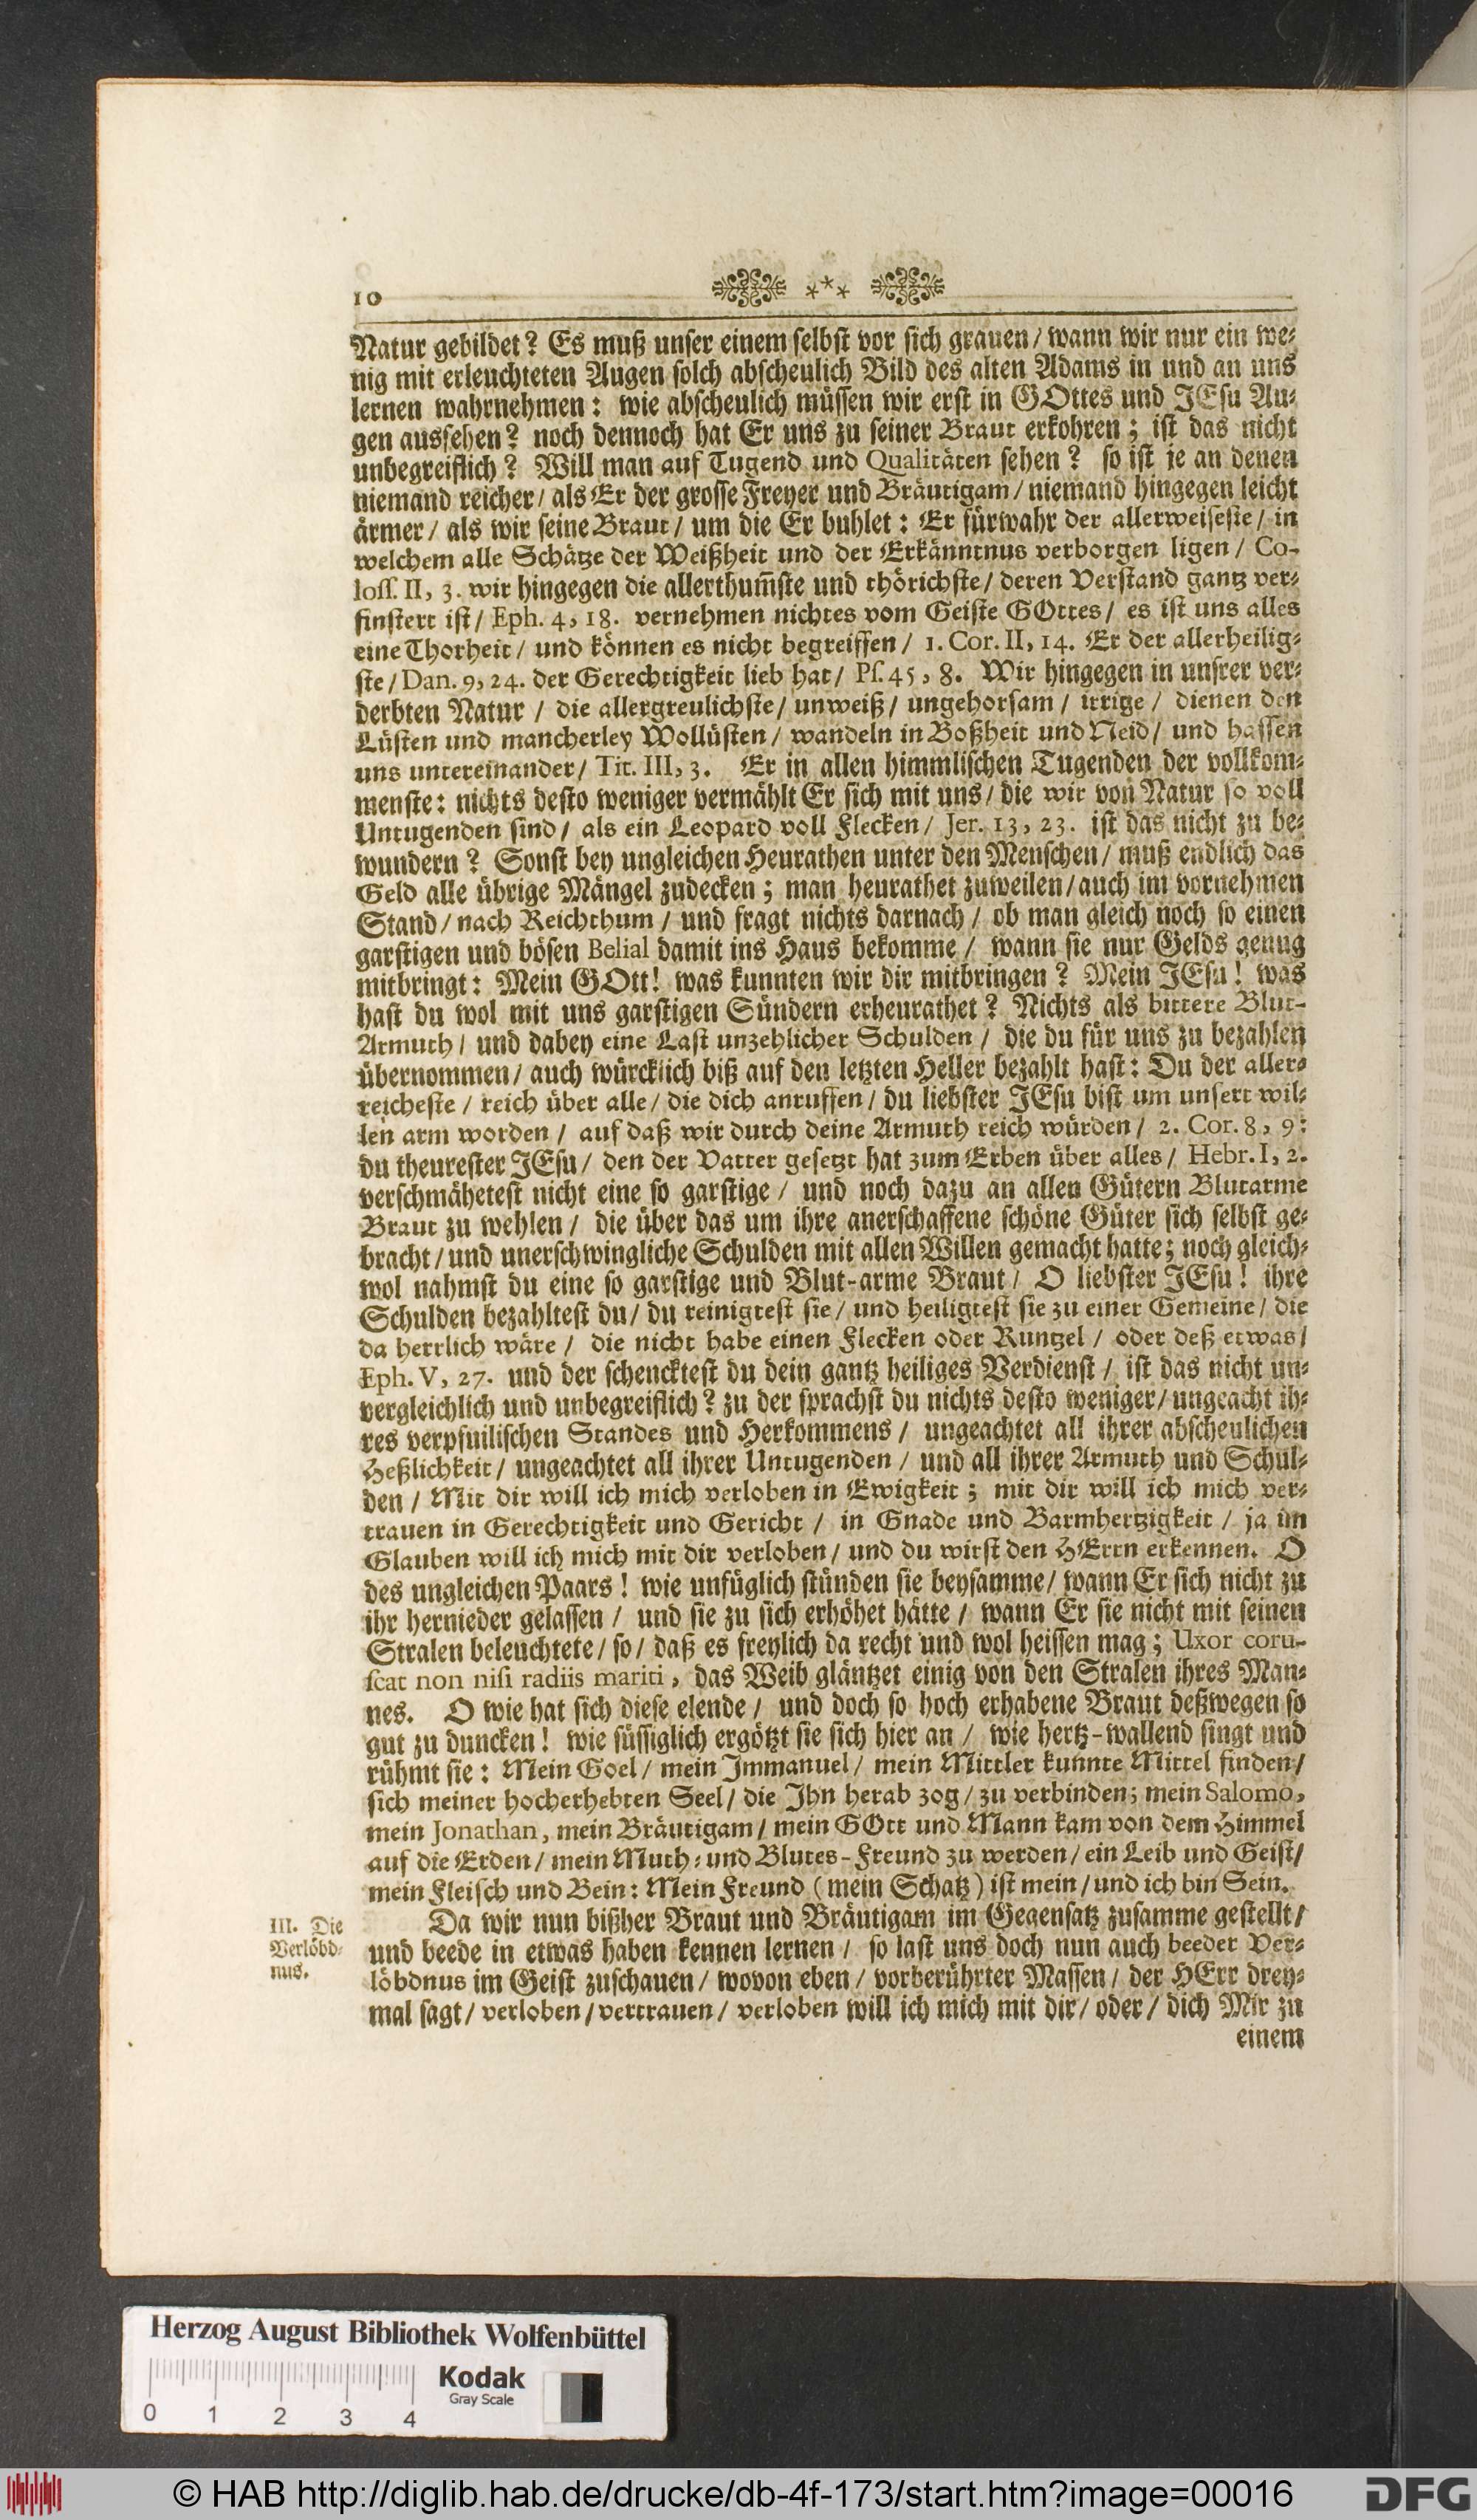 10
Natur gebildet? Es muß unser einem selbst vor sich grauen/ wann wir nur ein we-
nig mit erleuchteten Augen solch abscheulich Bild des alten Adams in und an uns
lernen wahrnehmen: wie abscheulich müssen wir erst in GOttes und JEsu Au-
gen aussehen? noch dennoch hat Er uns zu seiner Braut erkohren; ist das nicht
unbegreiflich? Will man auf Tugend und Qualitäten sehen? so ist je an denen
niemand reicher/ als Er der grosse Freyer und Bräutigam/ niemand hingegen leicht
ärmer/ als wir seine Braut/ um die Er buhlet: Er fürwahr der allerweiseste/ in
welchem alle Schätze der Weißheit und der Erkänntnus verborgen ligen/ Co-
loss. II, 3. wir hingegen die allerthum̃ste und thörichste/ deren Verstand gantz ver-
finstert ist/ Eph. 4, 18. vernehmen nichtes vom Geiste GOttes/ es ist uns alles
eine Thorheit/ und können es nicht begreiffen/ 1. Cor. II, 14. Er der allerheilig-
ste/ Dan. 9, 24. der Gerechtigkeit lieb hat/ Ps. 45, 8. Wir hingegen in unsrer ver-
derbten Natur/ die allergreulichste/ unweiß/ ungehorsam/ irrige/ dienen den
Lüsten und mancherley Wollüsten/ wandeln in Boßheit und Neid/ und hassen
uns untereinander/ Tit. III, 3. Er in allen himmlischen Tugenden der vollkom-
menste: nichts desto weniger vermählt Er sich mit uns/ die wir von Natur so voll
Untugenden sind/ als ein Leopard voll Flecken/ Jer. 13, 23. ist das nicht zu be-
wundern? Sonst bey ungleichen Heurathen unter den Menschen/ muß endlich das
Geld alle übrige Mängel zudecken; man heurathet zuweilen/ auch im vornehmen
Stand/ nach Reichthum/ und fragt nichts darnach/ ob man gleich noch so einen
garstigen und bösen Belial damit ins Haus bekomme/ wann sie nur Gelds genug
mitbringt: Mein GOtt! was kunnten wir dir mitbringen? Mein JEsu! was
hast du wol mit uns garstigen Sündern erheurathet? Nichts als bittere Blut-
Armuth/ und dabey eine Last unzehlicher Schulden/ die du für uns zu bezahlen
übernommen/ auch würcklich biß auf den letzten Heller bezahlt hast: Du der aller-
reicheste/ reich über alle/ die dich anruffen/ du liebster JEsu bist um unsert wil-
len arm worden/ auf daß wir durch deine Armuth reich würden/ 2. Cor. 8, 9:
du theurester JEsu/ den der Vatter gesetzt hat zum Erben über alles/ Hebr. I, 2.
verschmähetest nicht eine so garstige/ und noch dazu an allen Gütern Blutarme
Braut zu wehlen/ die über das um ihre anerschaffene schöne Güter sich selbst ge-
bracht/ und unerschwingliche Schulden mit allen Willen gemacht hatte; noch gleich-
wol nahmst du eine so garstige und Blut-arme Braut/ O liebster JEsu! ihre
Schulden bezahltest du/ du reinigtest sie/ und heiligtest sie zu einer Gemeine/ die
da herrlich wäre/ die nicht habe einen Flecken oder Runtzel/ oder deß etwas/
Eph. V, 27. und der schencktest du dein gantz heiliges Verdienst/ ist das nicht un-
vergleichlich und unbegreiflich? zu der sprachst du nichts desto weniger/ ungeacht ih-
res verpfuilischen Standes und Herkommens/ ungeachtet all ihrer abscheulichen
Heßlichkeit/ ungeachtet all ihrer Untugenden/ und all ihrer Armuth und Schul-
den/ Mit dir will ich mich verloben in Ewigkeit; mit dir will ich mich ver-
trauen in Gerechtigkeit und Gericht/ in Gnade und Barmhertzigkeit/ ja im
Glauben will ich mich mit dir verloben/ und du wirst den HErrn erkennen. O
des ungleichen Paars! wie unfüglich stünden sie beysamme/ wann Er sich nicht zu
ihr hernieder gelassen/ und sie zu sich erhöhet hätte/ wann Er sie nicht mit seinen
Stralen beleuchtete/ so/ daß es freylich da recht und wol heissen mag; Uxor coru-
scat non nisi radiis mariti, das Weib gläntzet einig von den Stralen ihres Man-
nes. O wie hat sich diese elende/ und doch so hoch erhabene Braut deßwegen so
gut zu duncken! wie süssiglich ergötzt sie sich hier an/ wie hertz-wallend singt und
rühmt sie: Mein Goel/ mein Immanuel/ mein Mittler kunnte Mittel finden/
sich meiner hocherhebten Seel/ die Ihn herab zog/ zu verbinden; mein Salomo,
mein Jonathan, mein Bräutigam/ mein GOtt und Mann kam von dem Himmel
auf die Erden/ mein Muth- und Blutes-Freund zu werden/ ein Leib und Geist/
mein Fleisch und Bein: Mein Freund (mein Schatz) ist mein/ und ich bin Sein.
III. Die
Verlöbd-
nus.
Da wir nun bißher Braut und Bräutigam im Gegensatz zusamme gestellt/
und beede in etwas haben kennen lernen/ so last uns doch nun auch beeder Ver-
löbdnus im Geist zuschauen/ wovon eben/ vorberührter Massen/ der HErr drey-
mal sagt/ verloben/ vertrauen/ verloben will ich mich mit dir/ oder/ dich Mir zu
einem
Herzog August Bibliothek Wolfenbüttel
Kodak
Gray Scale
0 1 2 3 4
© HAB http://diglib.hab.de/drucke/db-4f-173/start.htm?image=00016
DFG